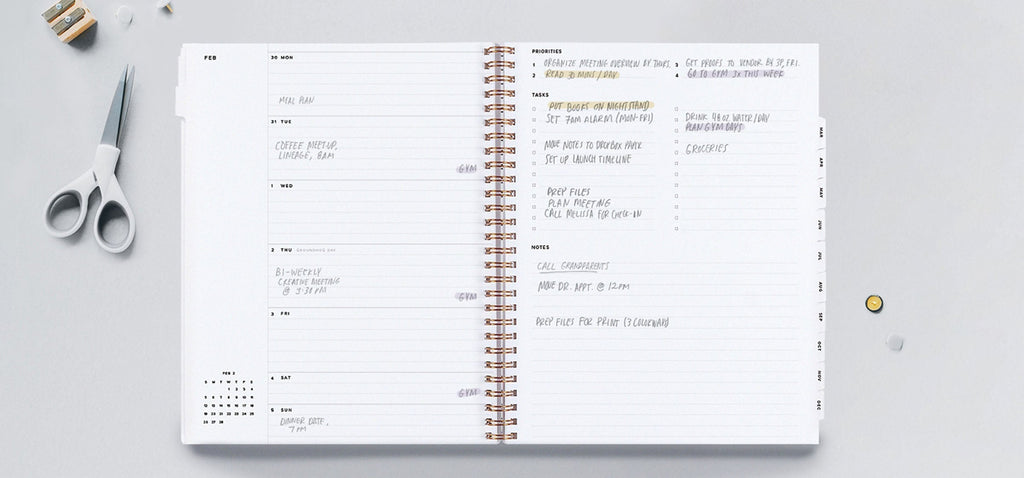 FEB
30 MON
MEAL PLAN
31 TUE
COFFEE MEETUP,
LINEAGE, 8AM
GYM
1 WED
2 THU GROUNDHOG DAY
BI-WEEKLY
CREATIVE MEETING
@ 3:30 PM
GYM
3 FRI
4 SAT
GYM
5 SUN
DINNER DATE,
7 PM
S M T W T F S
1 2 3 4
5 6 7 8 9 10 11
12 13 14 15 16 17 18
19 20 21 22 23 24 25
26 27 28
PRIORITIES
1 ORGANIZE MEETING OVERVIEW BY THURS.
2 READ 30 MINS / DAY
3 GET PROOFS TO VENDOR BY 3P, FRI.
4 GO TO GYM 3X THIS WEEK
TASKS
PUT BOOKS ON NIGHTSTAND
SET 7AM ALARM (MON-FRI)
MOVE NOTES TO DROPBOX PAPER
SET UP LAUNCH TIMELINE
PREP FILES
PLAN MEETING
CALL MELISSA FOR CHECK-IN
DRINK 48 OZ WATER/DAY
PLAN GYM DAYS
GROCERIES
NOTES
CALL GRANDPARENTS
MOVE DR. APPT. @ 12PM
PREP FILES FOR PRINT (3 COLORWAYS)
MAR
APR
MAY
JUN
JUL
AUG
SEP
OCT
NOV
DEC